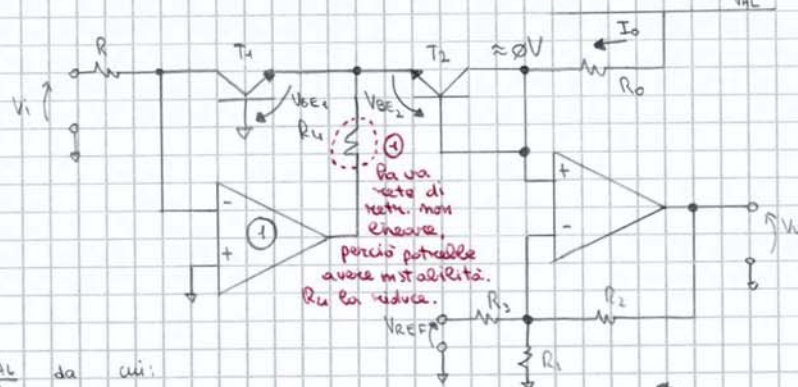 VAL
I₀
R
T1
T2
≈ØV
R₀
Vi
VBE1
VBE2
R4
①
la va
rete di
retr. non
lineare,
perciò potrebbe
avere instabilità.
R4 la riduce.
-
+
①
+
-
Vu
R3
R2
VREF
R1
AL da cui: